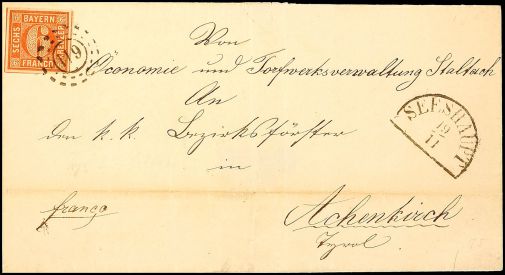 BAYERN
SECHS
KREUZER
FRANCO
6
Von
Oeconomie und Torfwerksverwaltung Staltach
An
den k. k. Bezirksförster
in
SEESHAUPT
19
11
franco
Achenkirch
Tyrol